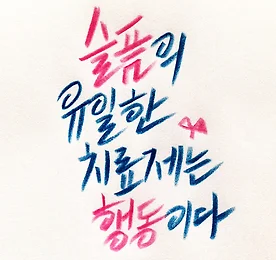 슬픔의
유일한
치료제는
행동이다